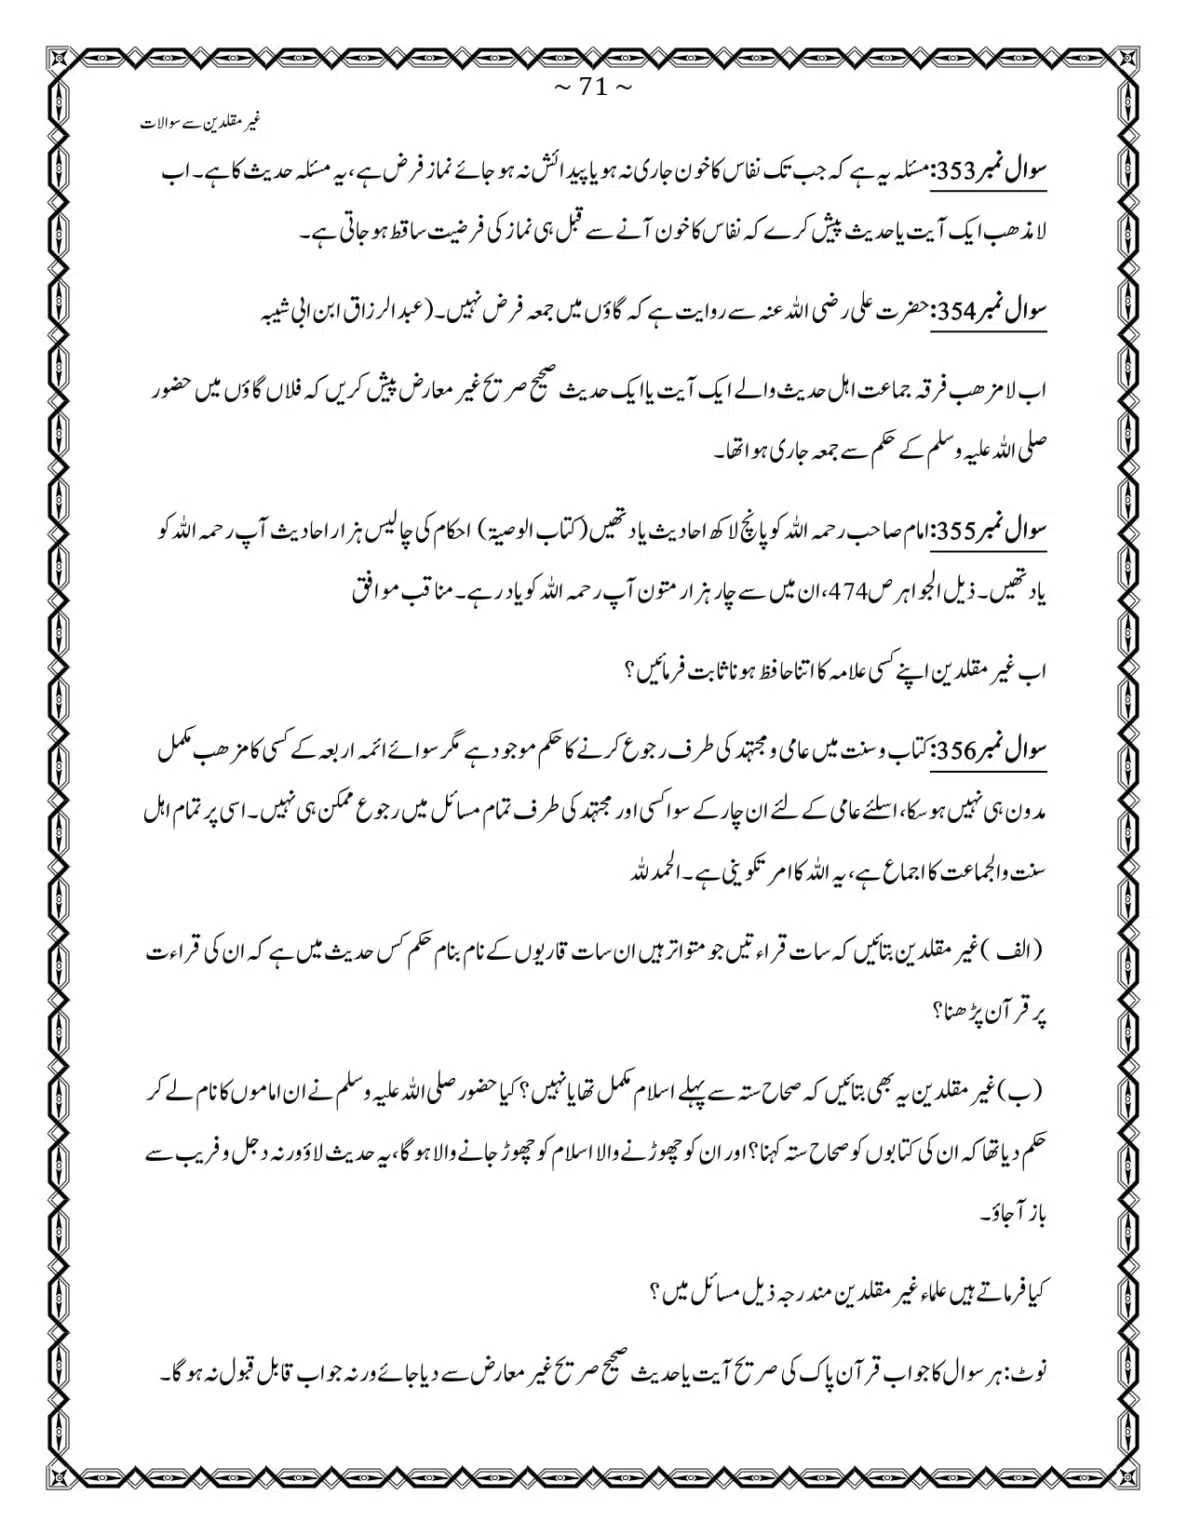 ~ 71 ~
غیر مقلدین سے سوالات
سوال نمبر353:مسئلہ یہ ہے کہ جب تک نفاس کا خون جاری نہ ہو یا پیدائش نہ ہو جائے نماز فرض ہے، یہ مسئلہ حدیث کا ہے۔ اب
لا مذھب ایک آیت یا حدیث پیش کرے کہ نفاس کا خون آنے سے قبل ہی نماز کی فرضیت ساقط ہو جاتی ہے۔
سوال نمبر354:حضرت علی رضی اللہ عنہ سے روایت ہے کہ گاؤں میں جمعہ فرض نہیں۔(عبد الرزاق ابن ابی شیبہ
اب لا مزھب فرقہ جماعت اہل حدیث والے ایک آیت یا ایک حدیث صحیح صریح غیر معارض پیش کریں کہ فلاں گاؤں میں حضور
صلی اللہ علیہ وسلم کے حکم سے جمعہ جاری ہوا تھا۔
سوال نمبر355:امام صاحب رحمہ اللہ کو پانچ لاکھ احادیث یاد تھیں(کتاب الوصیۃ) احکام کی چالیس ہزار احادیث آپ رحمہ اللہ کو
یاد تھیں۔ ذیل الجواہر ص474،ان میں سے چار ہزار متون آپ رحمہ اللہ کو یاد رہے۔ مناقب موافق
اب غیر مقلدین اپنے کسی علامہ کا اتنا حافظ ہونا ثابت فرمائیں؟
سوال نمبر356:کتاب و سنت میں عامی و مجتہد کی طرف رجوع کرنے کا حکم موجود ہے مگر سوائے ائمہ اربعہ کے کسی کا مزھب مکمل
مدون ہی نہیں ہو سکا، اسلئے عامی کے لئے ان چار کے سوا کسی اور مجتہد کی طرف تمام مسائل میں رجوع ممکن ہی نہیں۔ اسی پر تمام اہل
سنت والجماعت کا اجماع ہے، یہ اللہ کا امر تکوینی ہے۔ الحمد للہ
(الف )غیر مقلدین بتائیں کہ سات قراءتیں جو متواتر ہیں ان سات قاریوں کے نام بنام حکم کس حدیث میں ہے کہ ان کی قراءت
پر قرآن پڑھنا؟
(ب)غیر مقلدین یہ بھی بتائیں کہ صحاح ستہ سے پہلے اسلام مکمل تھا یا نہیں؟ کیا حضور صلی اللہ علیہ وسلم نے ان اماموں کا نام لے کر
حکم دیا تھا کہ ان کی کتابوں کو صحاح ستہ کہنا؟ اور ان کو چھوڑنے والا اسلام کو چھوڑ جانے والا ہو گا، یہ حدیث لاؤ ورنہ دجل و فریب سے
باز آ جاؤ۔
کیا فرماتے ہیں علماء غیر مقلدین مندرجہ ذیل مسائل میں؟
نوٹ: ہر سوال کا جواب قرآن پاک کی صریح آیت یا حدیث صحیح صریح غیر معارض سے دیا جائے ورنہ جواب قابل قبول نہ ہو گا۔